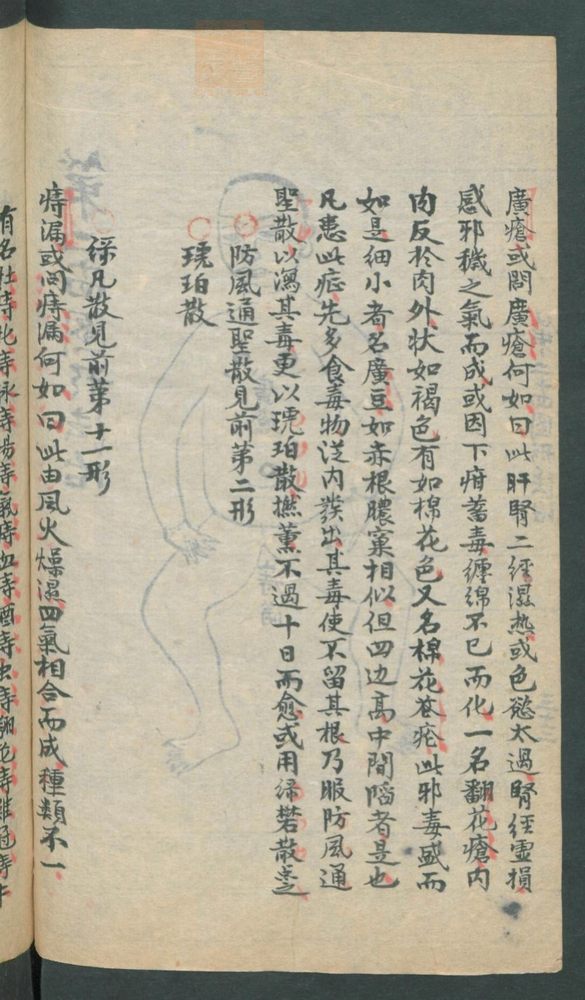 廣瘡或問廣瘡何如曰此肝腎二經濕热或色慾太過腎經虛損
感邪穢之氣而成或因下疳蓄毒纏綿不已而化一名翻花瘡内
肉反於肉外状如褐色有如棉花色又名棉花苍疕此邪毒盛而
如是細小者名廣豆如赤根膿窠相似但四边高中間陷者是也
凡患此症先多食毒物従内發出其毒使不留其根乃服防風通
聖散以瀉其毒更以琥珀散撚薰不過十日而愈或用綠礬散
防風通聖散見前第二形
琥珀散
保凡散見前第十一形
痔漏或问痔漏何如曰此由風火燥濕四氣相合而成種類不一
有名牡痔牝痔脉痔腸痔氣痔血痔酒痔虫痔翻花痔雞冠痔